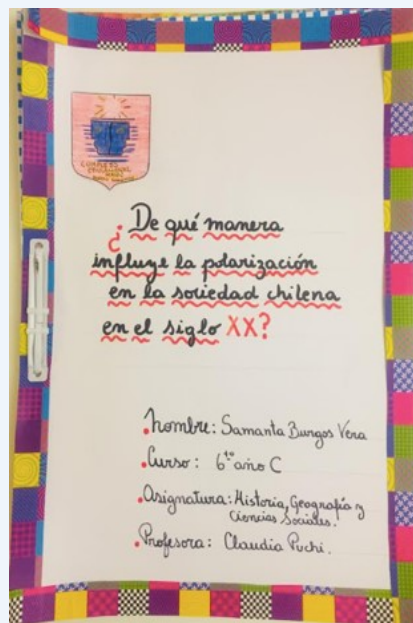 COMPLEJO
EDUCACIONAL
¿De qué manera
influye la polarización
en la sociedad chilena
en el siglo XX?
Nombre: Samanta Burgos Vera
Curso: 6to año C
Asignatura: Historia, Geografía y
Ciencias Sociales.
Profesora: Claudia Puchi.